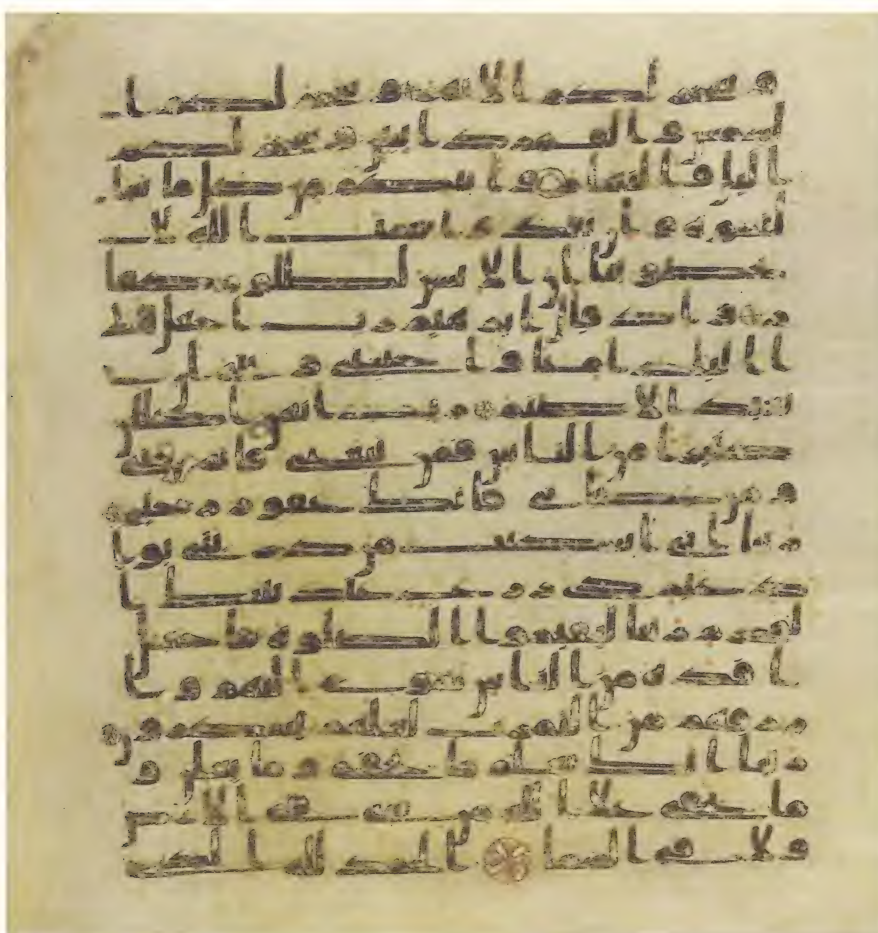 و سخر لكم الانهر و سخر لكم ا
لشمس و القمر دائبين و سخر لكم
اليل و النهار و اتيكم من كل ما سا
لتموه و ان تعدوا نعمت الله لا ت
حصوها ان الانسن لظلوم كفا
ر و اذ قال ابرهيم رب اجعل هذ
ا البلد امنا و اجنبني و بني ان
نعبد الاصنم رب انهن اضللن
كثيرا من الناس فمن تبعني فانه مني
و من عصاني فانك غفور رحيم
ربنا اني اسكنت من ذريتي بوا
د غير ذي زرع عند بيتك ا
لمحرم ربنا ليقيموا الصلوة فاجعل
افئدة من الناس تهوي اليهم و ا
رزقهم من الثمرت لعلهم يشكرون
ربنا انك تعلم ما نخفي و ما نعلن و
ما يخفى على الله من شيء في الارض
ولا في السما الحمد لله الذي